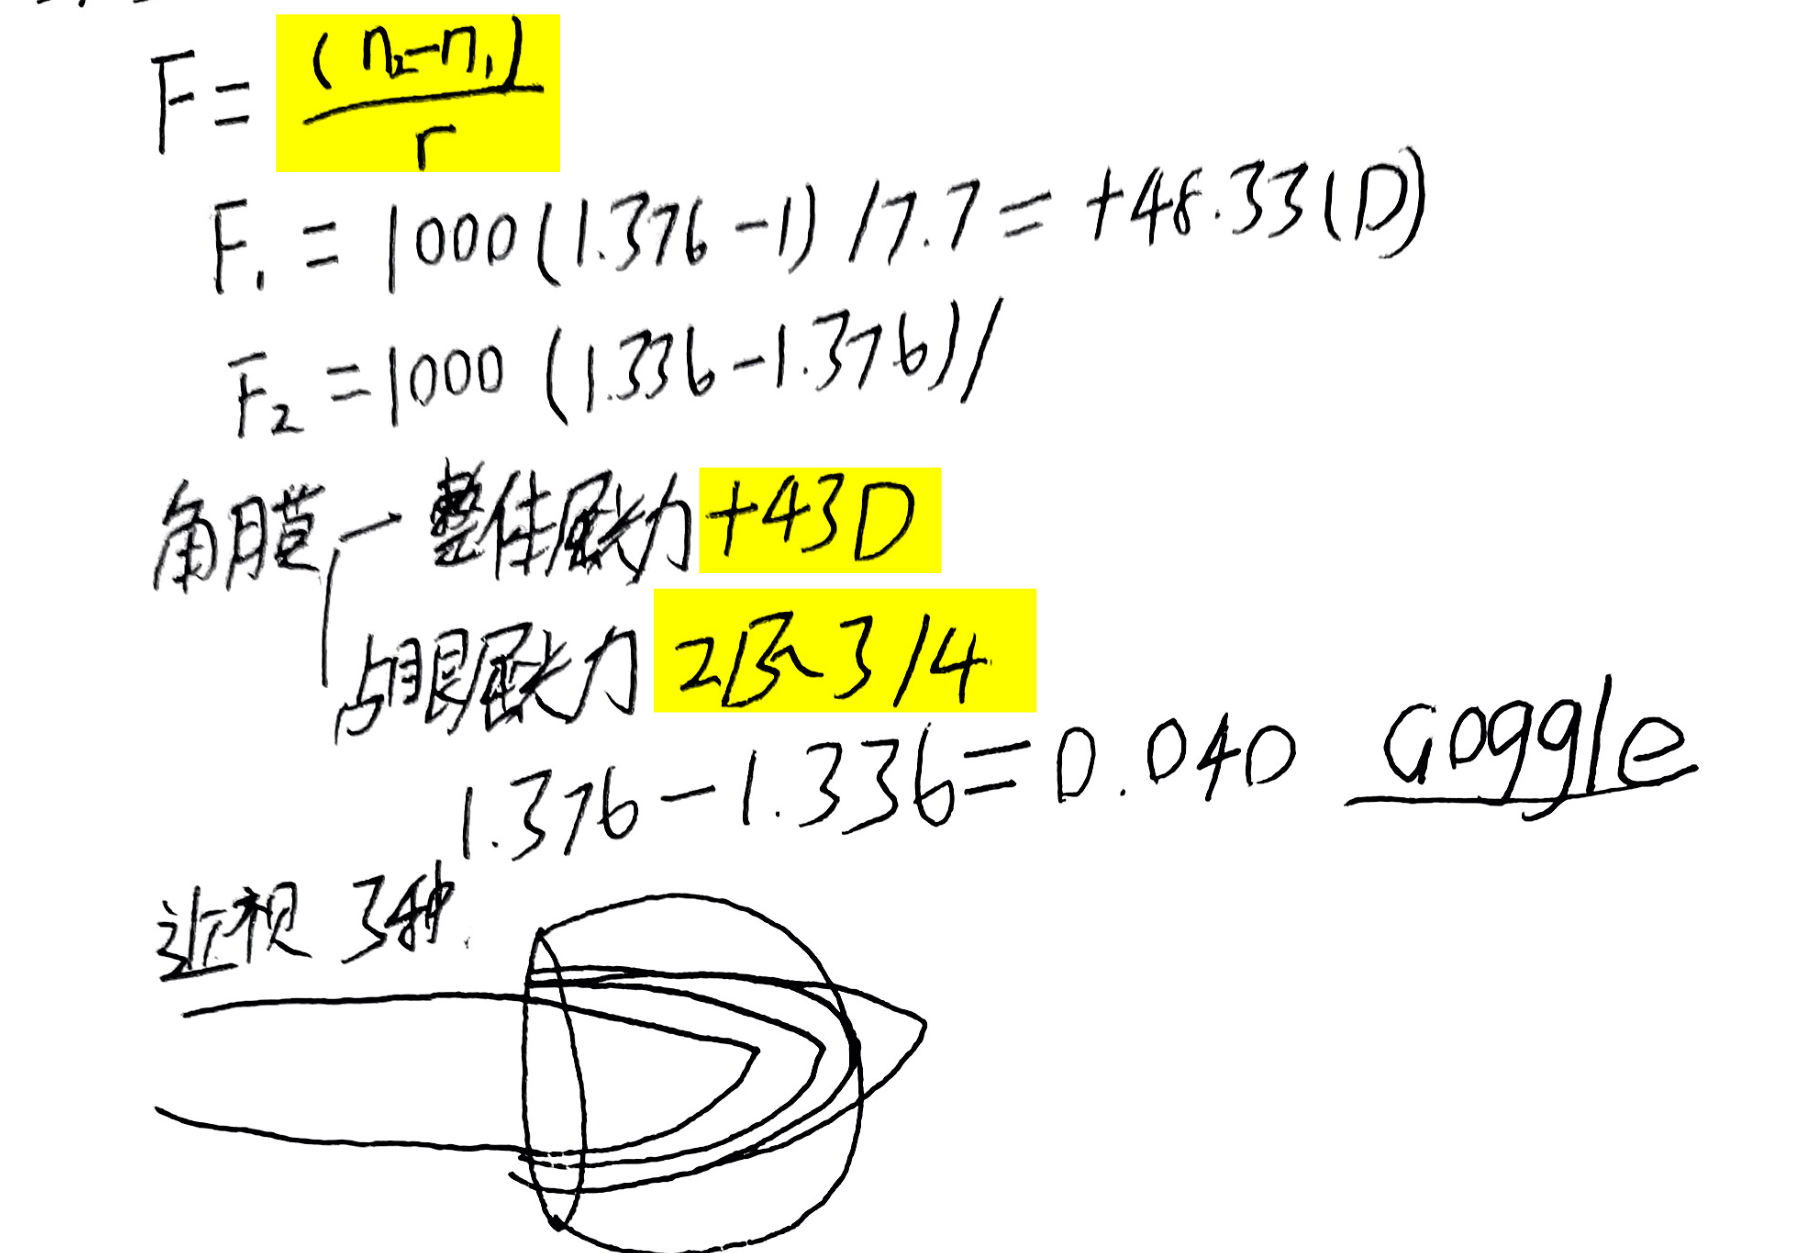 F = (n₂-n₁) / r
F₁ = 1000(1.376-1)/7.7 = +48.33(D)
F₂ = 1000(1.336-1.376)/
角膜 整体屈光力 +43D
占眼屈光力 3/4
1.376-1.336=0.040 Goggle
近视 3种.